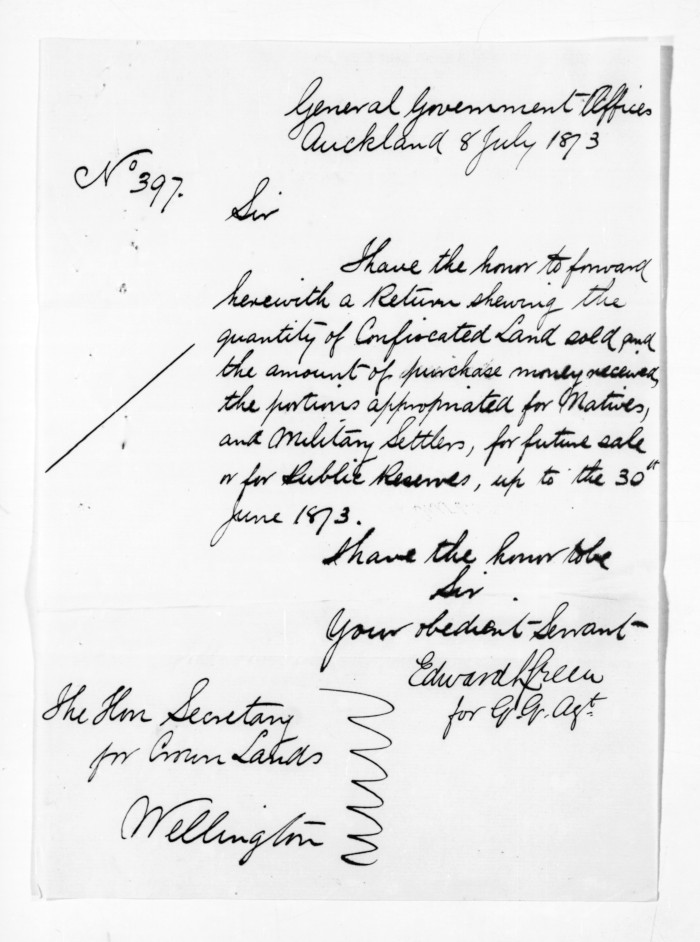 General Government Offices
Auckland 8 July 1873
No 397.
Sir
I have the honor to forward
herewith a Return shewing the
quantity of Confiscated Land sold and
the amount of purchase money received,
the portions appropriated for Natives,
and Military Settlers, for future sale
or for Public Reserves, up to the 30th
June 1873.
I have the honor to be
Sir
Your obedient Servant
Edward Green
for G. G. Agt.
The Hon Secretary
for Crown Lands
Wellington